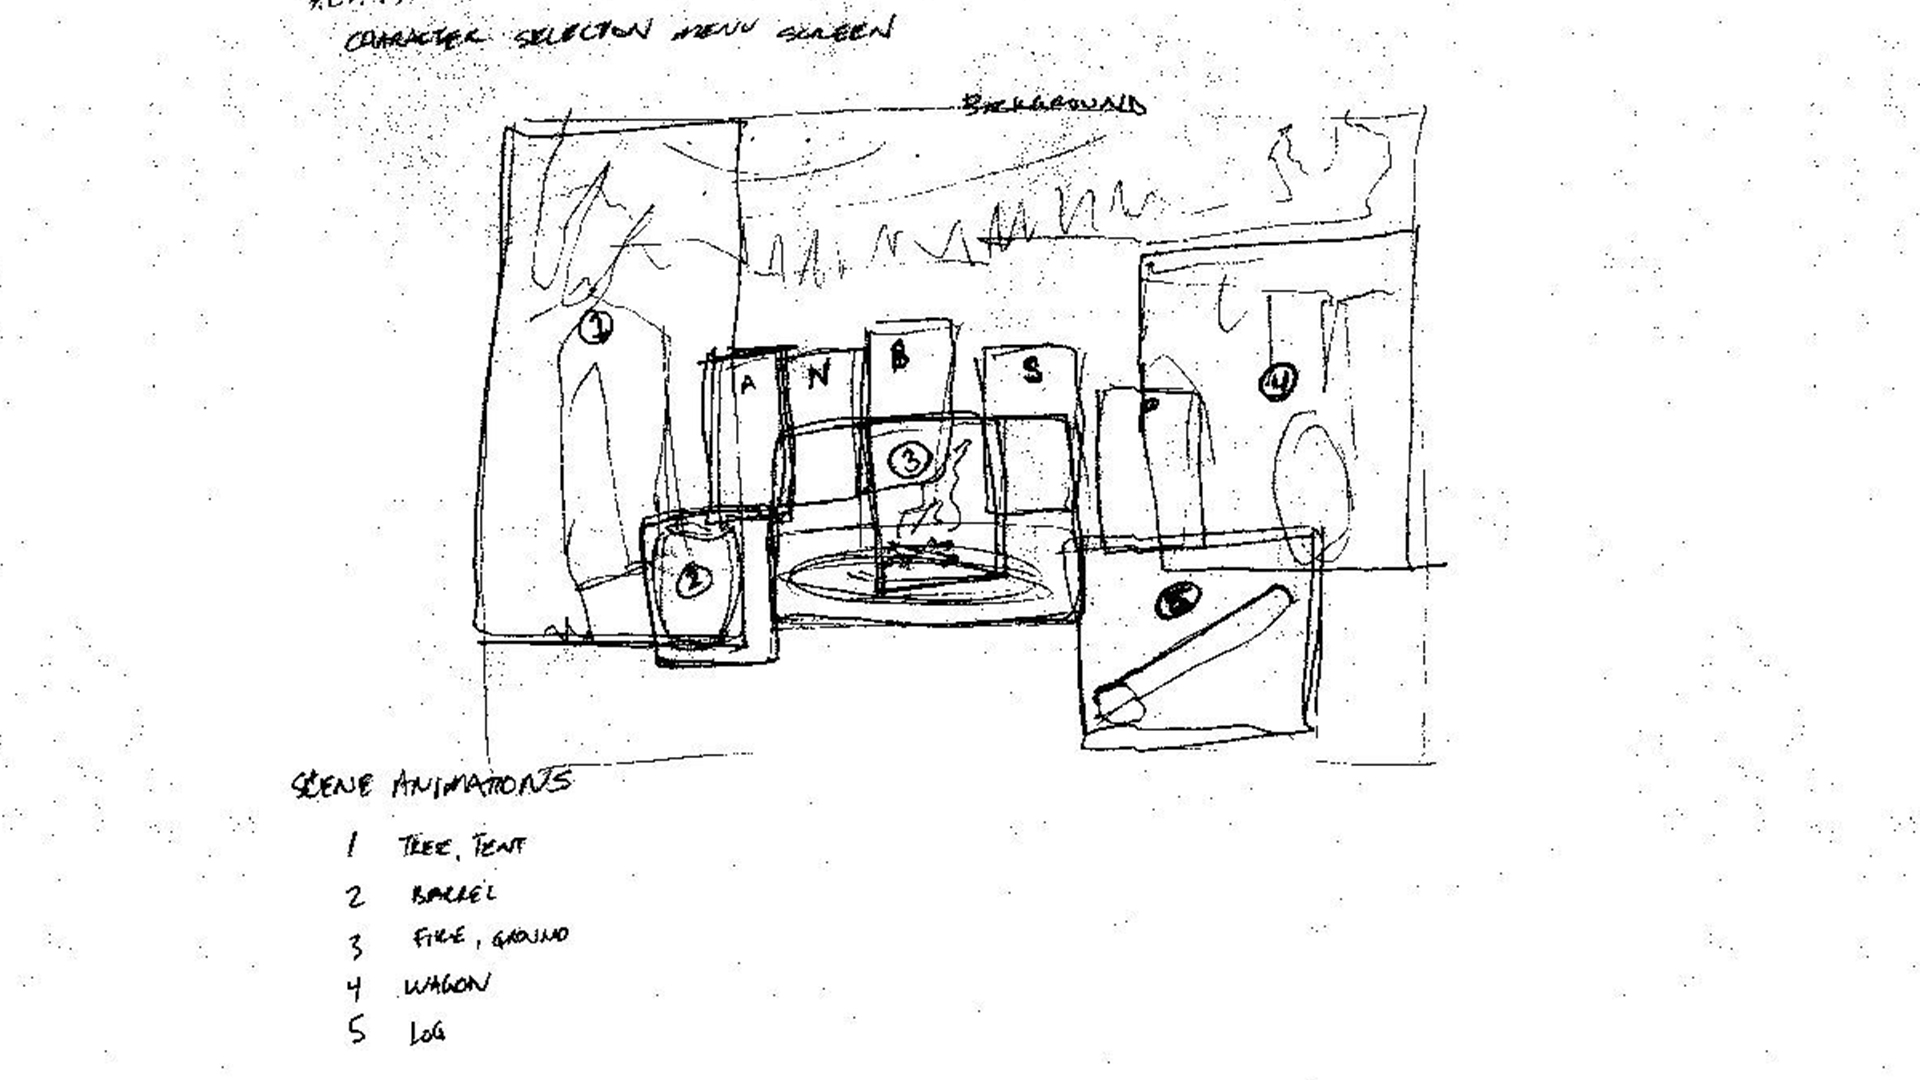 CHARACTER SELECTION MENU SCREEN
BACKGROUND
1
A N B S P
3
4
2
5
SCENE ANIMATIONS
1 TREE, TENT
2 BARREL
3 FIRE, GROUND
4 WAGON
5 LOG